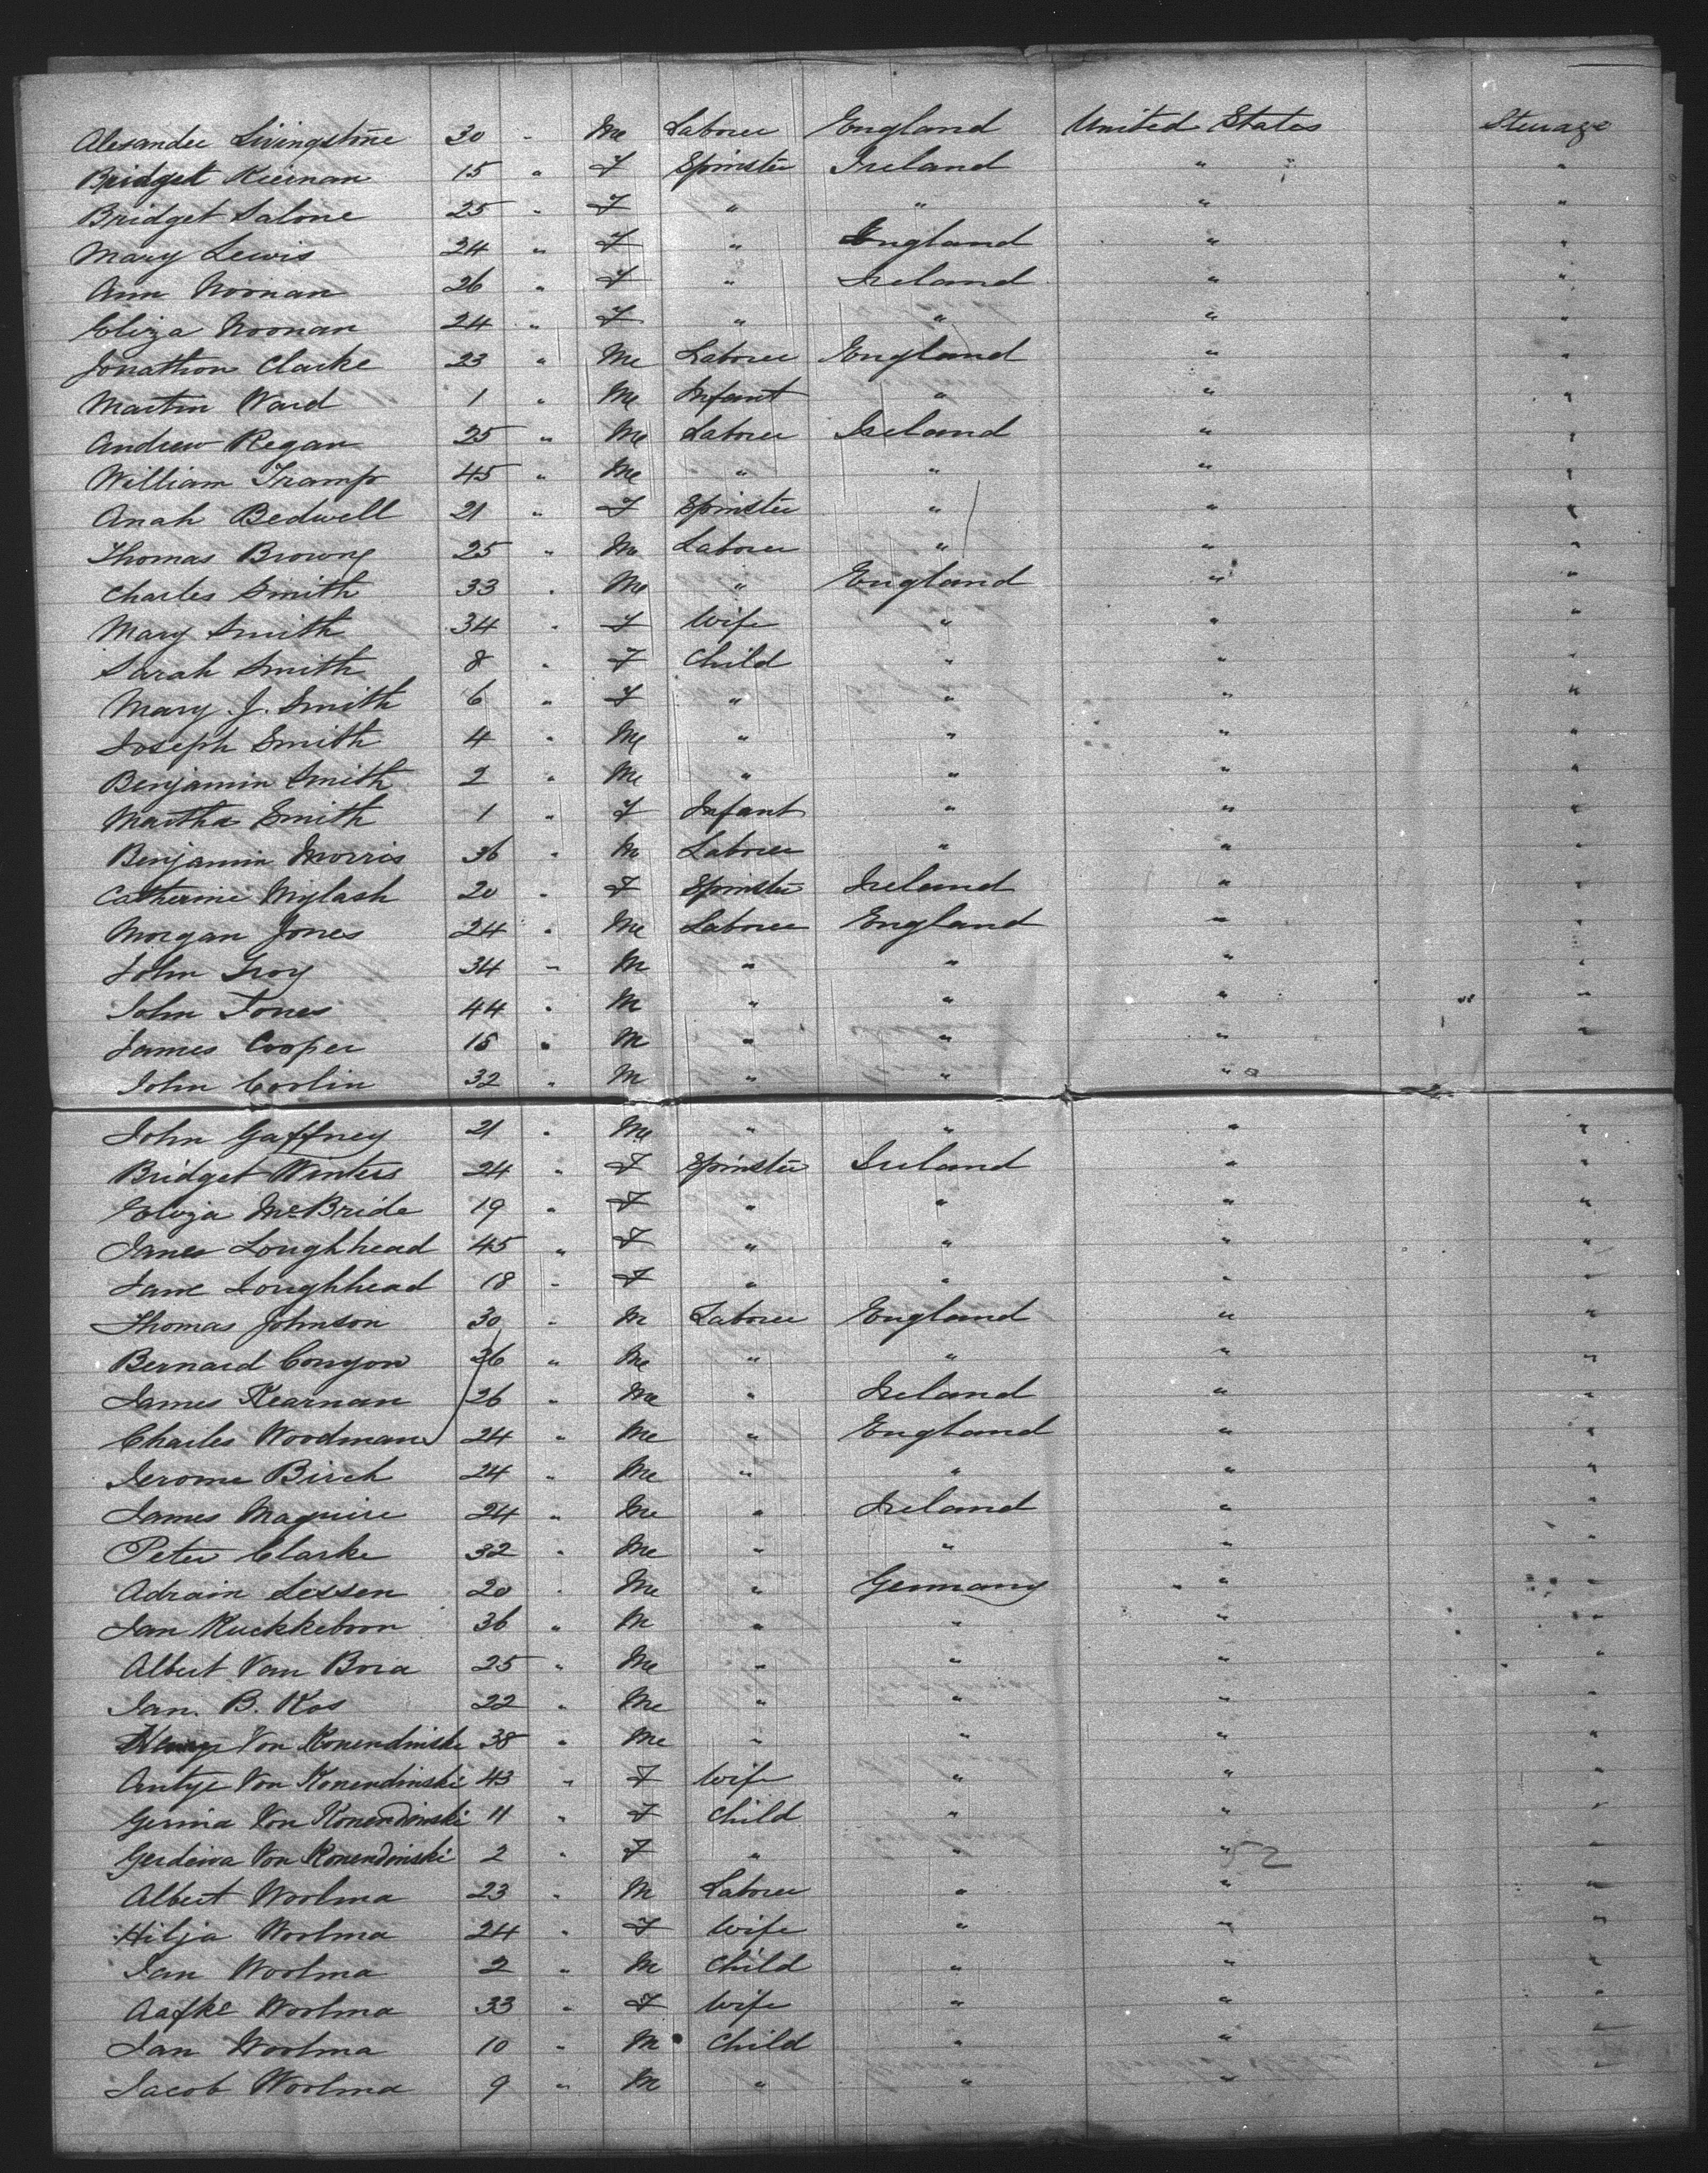 Alexander Livingstone 30 " Me Laborer England United States Steerage
Bridget Kiernan 15 " F Spinster Ireland " "
Bridget Salone 25 " F " " " "
Mary Lewis 24 " F " England " "
Ann Noonan 26 " F " Ireland " "
Eliza Noonan 24 " F " " " "
Jonathon Clarke 23 " Me Laborer England " "
Martin Ward 1 " Me Infant " " "
Andrew Regan 25 " Me Laborer Ireland " "
William Tramp 45 " Me " " " "
Anah Bedwell 21 " F Spinster " " "
Thomas Browne 25 " M Laborer " " "
Charles Smith 33 " Me " England " "
Mary Smith 34 " F Wife " " "
Sarah Smith 8 " F Child " " "
Mary J. Smith 6 " F " " " "
Joseph Smith 4 " Me " " " "
Benjamin Smith 2 " Me " " " "
Martha Smith 1 " F Infant " " "
Benjamin Morris 36 " M Laborer " " "
Catherine Mylash 20 " F Spinster Ireland " "
Morgan Jones 24 " Me Laborer England " "
John Troy 34 " M " " " "
John Jones 44 " M " " " "
James Cooper 15 " M " " " "
John Corlin 32 " M " " "
John Gaffney 21 " Me " " " "
Bridget Winters 24 " F Spinster Ireland " "
Eliza McBride 19 " F " " " "
Janes Loughhead 45 " F " " " "
Jane Loughhead 18 " F " " " "
Thomas Johnson 30 " M Laborer England " "
Bernard Conyon 36 " Me " " " "
James Kearnan 26 " Me " Ireland " "
Charles Woodman 24 " Me " England " "
Jerome Birch 24 " Me " " " "
James Maguire 24 " Me " Ireland " "
Peter Clarke 32 " Me " " " "
Adrain Lessen 20 " Me " Germany " "
Jan Kuckkeborn 36 " M " " " "
Albert Van Bora 25 " Me " " " "
Jan. B. Kos 22 " Me " " " "
Von Konendinski 38 " Me " " " "
Antje Von Konendinski 43 " F Wife " " "
Gerina Von Konendinski 11 " F Child " " "
Gerdeiva Von Konendinski 2 " F " " " "
52
Albert Woolma 23 " M Laborer " " "
Hilja Woolma 24 " F Wife " " "
Jan Woolma 2 " M Child " " "
Aafke Woolma 33 " F Wife " " "
Jan Woolma 10 " M Child " " "
Jacob Woolma 9 " M " " " "